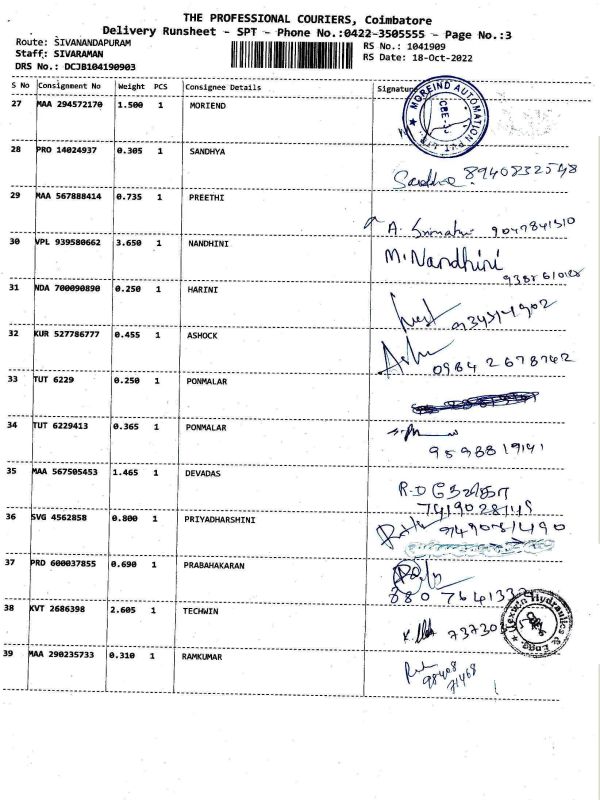 THE PROFESSIONAL COURIERS, Coimbatore
Delivery Runsheet - SPT - Phone No.:0422-3505555 - Page No.:3
Route: SIVANANDAPURAM
RS No.: 1041909
Staff: SIVARAMAN
RS Date: 18-Oct-2022
DRS No.: DCJB104190903
S No Consignment No Weight PCS Consignee Details Signature
27 MAA 294572170 1.500 1 MORIEND
MOREIND AUTOMATION PVT. LTD.
28 PRO 14024937 0.305 1 SANDHYA
Sandhya 8940832548
29 MAA 567888414 0.735 1 PREETHI
A. 9047841510
30 VPL 939580662 3.650 1 NANDHINI
M. Nandhini
31 NDA 700090890 0.250 1 HARINI
32 KUR 527786777 0.455 1 ASHOCK
09842678742
33 TUT 6229 0.250 1 PONMALAR
34 TUT 6229413 0.365 1 PONMALAR
9598819141
35 MAA 567505453 1.465 1 DEVADAS
R.D
36 SVG 4562858 0.800 1 PRIYADHARSHINI
37 PRD 600037855 0.690 1 PRABAHAKARAN
38 KVT 2686398 2.605 1 TECHWIN
39 MAA 290235733 0.310 1 RAMKUMAR
98408
71468